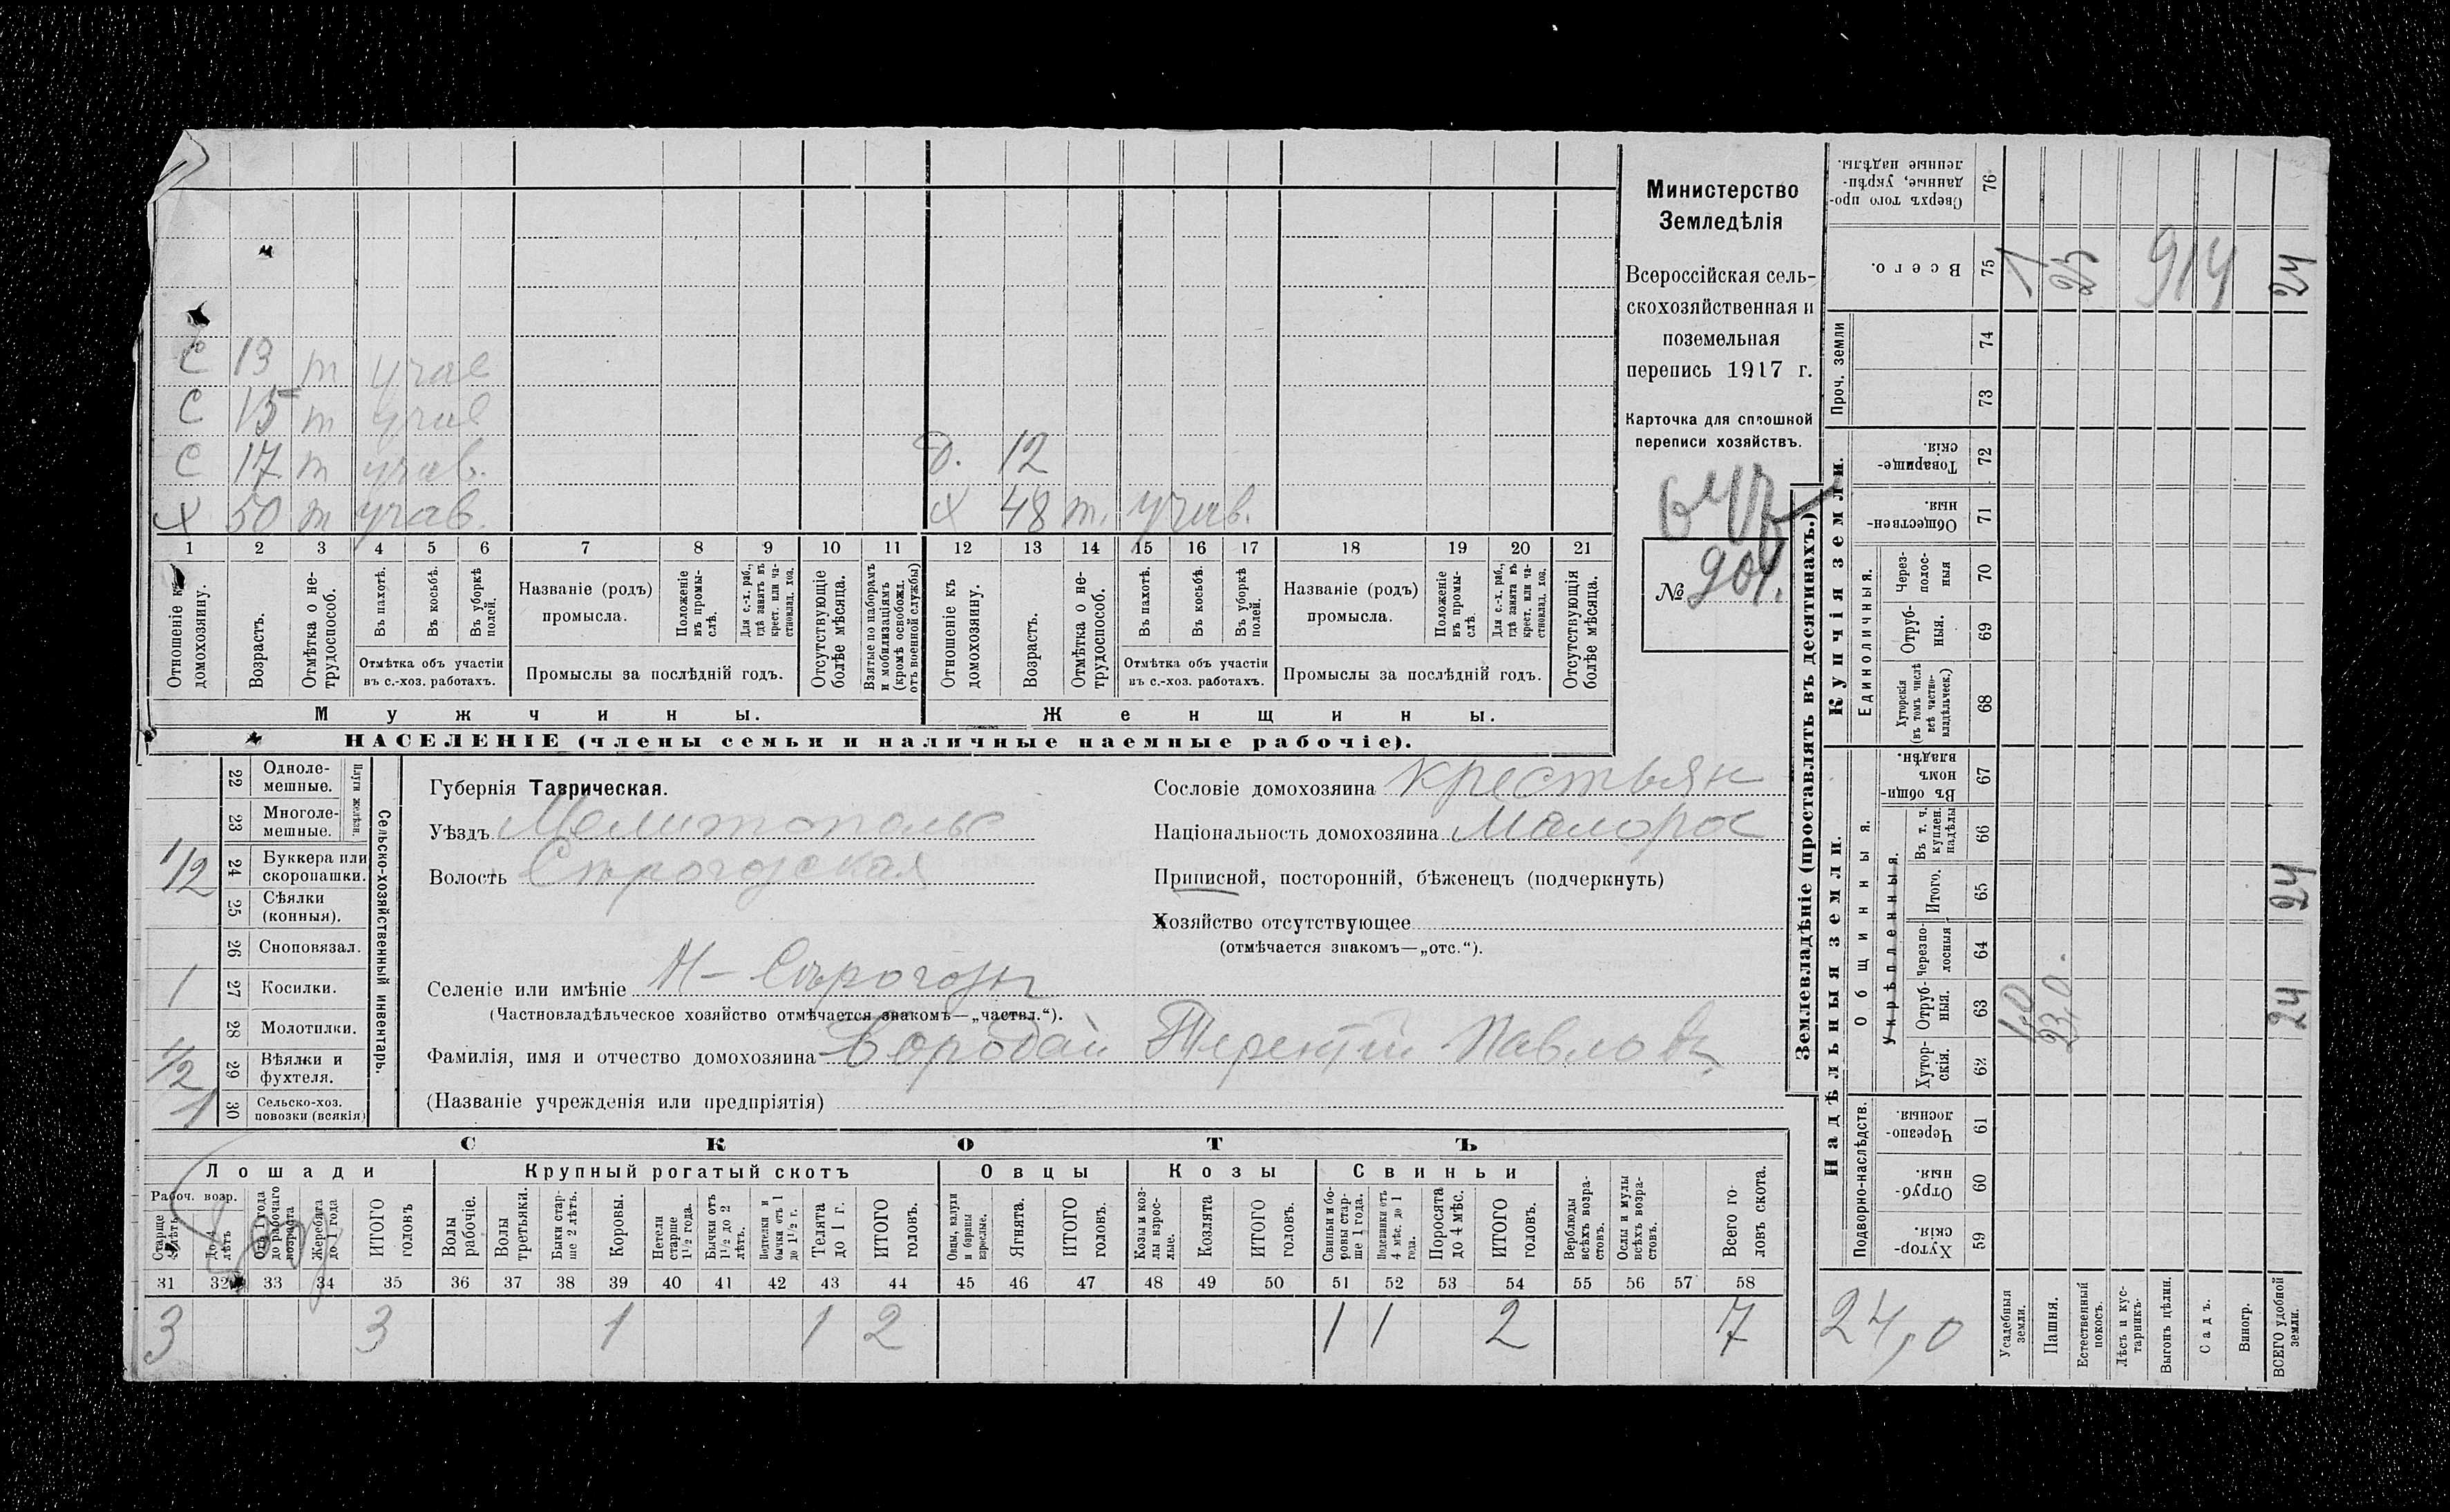 С 13 т учав
С 15 т учав
С 17 т учав. д. 12
х 50 т учав. х 48 т. учав.
1 2 3 4 5 6 7 8 9 10 11 12 13 14 15 16 17 18 19 20 21
Отношеніе къ домохозяину.
Возрастъ.
Отмѣтка о нетрудоспособ.
Въ пахотѣ.
Въ косьбѣ.
Въ уборкѣ полей.
Отмѣтка объ участіи
въ с.-хоз. работахъ.
Названіе (родъ)
промысла.
Положеніе въ промыслѣ.
Для с.-х. раб., гдѣ занятъ въ крест. или частновлад. хоз.
Промыслы за послѣдній годъ.
Отсутствующіе болѣе мѣсяца.
Взятые по наборамъ и мобилизаціямъ (кромѣ освобожд. отъ военной службы)
Отношеніе къ домохозяину.
Возрастъ.
Отмѣтка о нетрудоспособ.
Въ пахотѣ.
Въ косьбѣ.
Въ уборкѣ полей.
Отмѣтка объ участіи
въ с.-хоз. работахъ.
Названіе (родъ)
промысла.
Положеніе въ промыслѣ.
Для с.-х. раб., гдѣ занята въ крест. или частновлад. хоз.
Промыслы за послѣдній годъ.
Отсутствующія болѣе мѣсяца.
Мужчины. Женщины.
НАСЕЛЕНІЕ (члены семьи и наличные наемные рабочіе).
Министерство
Земледѣлія
Всероссійская сель-
скохозяйственная и
поземельная
перепись 1917 г.
Карточка для сплошной
переписи хозяйствъ.
№ 904.
Сельско-хозяйственный инвентарь.
Плуги желѣзн.
22 Одноле-
мешные.
23 Многоле-
мешные.
1/2 24 Буккера или
скоропашки.
25 Сѣялки
(конныя).
26 Сноповязал.
1 27 Косилки.
28 Молотилки.
1/2 29 Вѣялки и
фухтеля.
1 30 Сельско-хоз.
повозки (всякія)
Губернія Таврическая.
Уѣздъ Мелитопольс
Волость Сѣрогозская
Сословіе домохозяина крестьян
Національность домохозяина Малорос
Приписной, посторонній, бѣженецъ (подчеркнуть)
Хозяйство отсутствующее
(отмѣчается знакомъ—„отс.“).
Селеніе или имѣніе Н-Сѣрогозы
(Частновладѣльческое хозяйство отмѣчается знакомъ—„частвл.“).
Фамилія, имя и отчество домохозяина Бородай Терентій Павловъ
(Названіе учрежденія или предпріятія)
СКОТЪ
Лошади Крупный рогатый скотъ Овцы Козы Свиньи
Рабоч. возр.
Старше 4 лѣтъ
До 4 лѣтъ
Отъ 1 года до рабочаго возраста
Жеребята до 1 года
ИТОГО головъ
Волы рабочіе.
Волы третьяки.
Быки старше 2 лѣтъ.
Коровы.
Нетели старше 1½ года.
Бычки отъ 1½ до 2 лѣтъ.
Подтелки и бычки отъ 1 до 1½ г.
Телята до 1 г.
ИТОГО головъ.
Овцы, валухи и бараны взрослые.
Ягнята.
ИТОГО головъ.
Козы и козлы взрослые.
Козлята
ИТОГО головъ.
Свиньи и боровы старше 1 года.
Подсвинки отъ 4 мѣс. до 1 года.
Поросята до 4 мѣс.
ИТОГО головъ.
Верблюды всѣхъ возрастовъ.
Ослы и мулы всѣхъ возрастовъ.
Всего головъ скота.
31 32 33 34 35 36 37 38 39 40 41 42 43 44 45 46 47 48 49 50 51 52 53 54 55 56 57 58
3 3 1 1 2 1 1 2 7
Землевладѣніе (проставлять въ десятинахъ.)
Купчія земли.
Надѣльныя земли.
Сверхъ того проданные, укрѣпленные надѣлы. 76
Всего. 75 1 23 914 24
Проч. земли
74
73
Товарищескія. 72
Общественныя. 71
Единоличныя.
Черезполосныя 70
Отрубныя. 69
Хуторскія (въ томъ числѣ всѣ частновладѣльческ.) 68
Общинныя.
Въ общинномъ владѣн. 67
Укрѣпленныя.
Въ т. ч. куплен. надѣлы 66
Итого. 65 24
черезполосныя 64
Отрубныя. 63 1,0 23,0. 24
Хуторскія. 62
Подворно-наслѣдств.
Черезполосныя. 61
Отрубныя. 60
Хуторскія. 59
24,0
Усадебныя земли.
Пашня.
Естественный покосъ.
Лѣсъ и кустарникъ.
Выгонъ цѣлин.
Садъ.
Виногр.
ВСЕГО удобной земли.